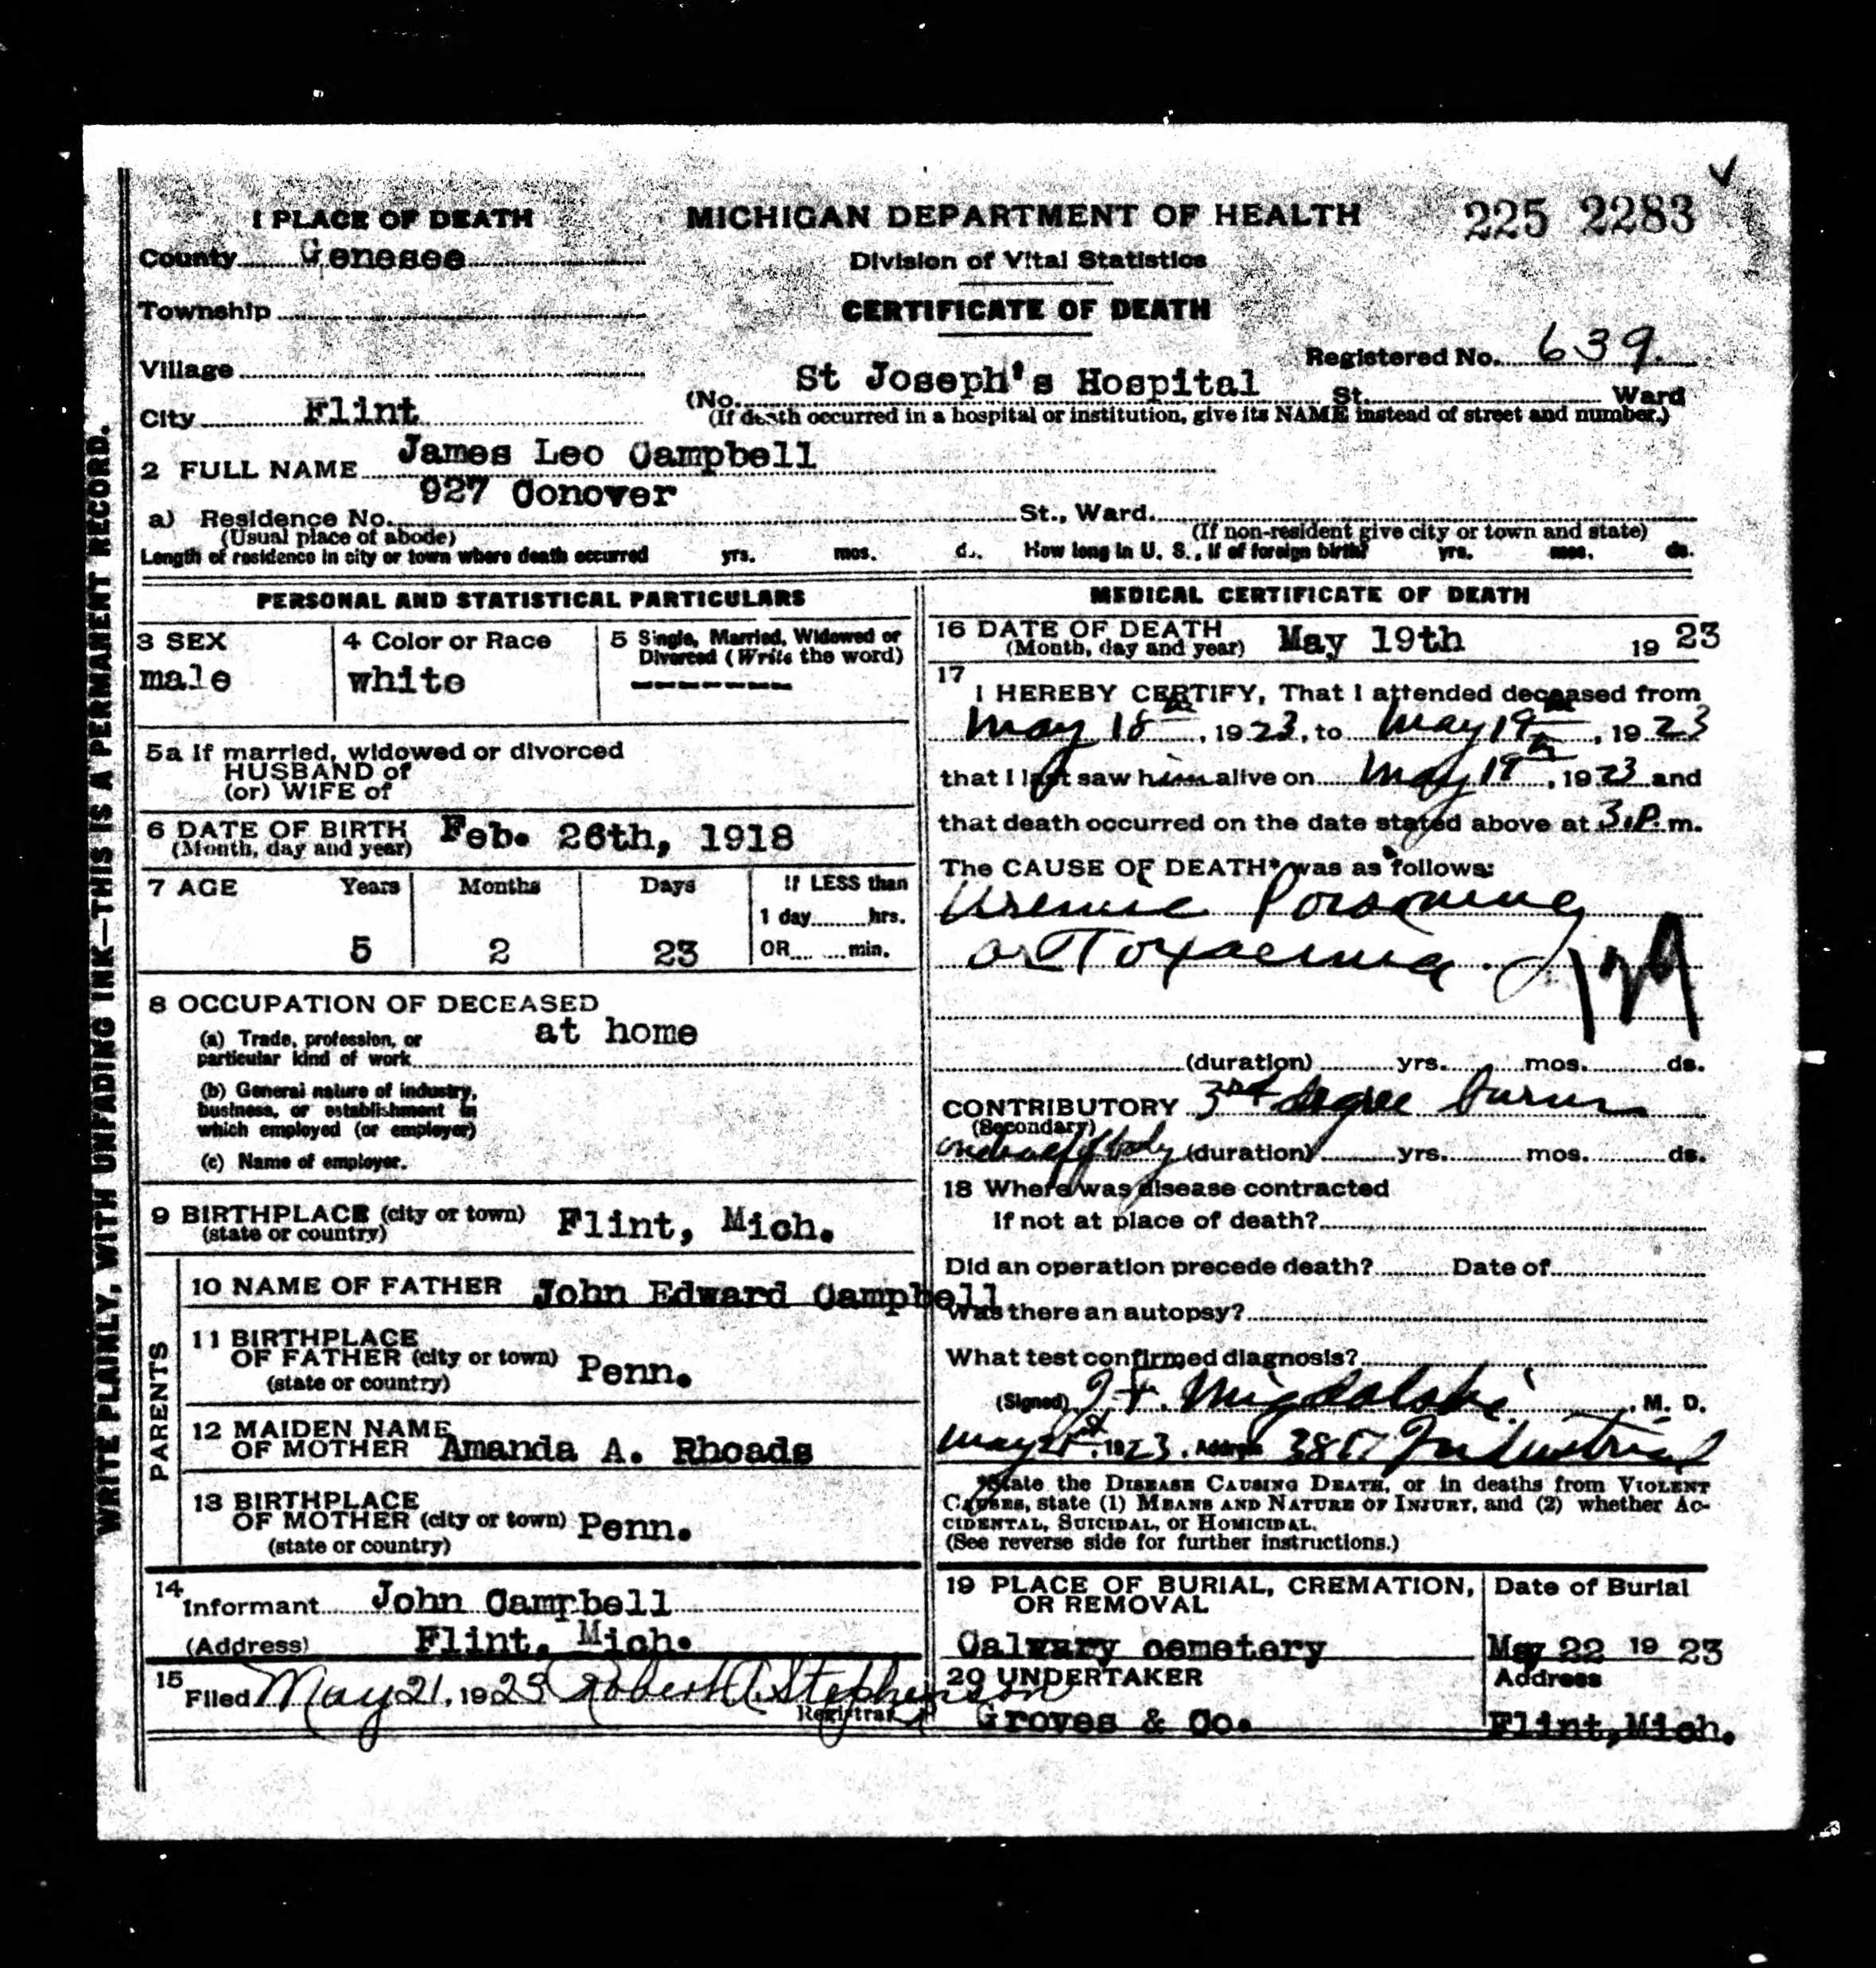 WRITE PLAINLY, WITH UNFADING INK—THIS IS A PERMANENT RECORD.
1 PLACE OF DEATH
County Genesee
Township
Village
City Flint
MICHIGAN DEPARTMENT OF HEALTH
Division of Vital Statistics
CERTIFICATE OF DEATH
225 2283
Registered No. 639.
(No. St Joseph's Hospital St. Ward
(If death occurred in a hospital or institution, give its NAME instead of street and number.)
2 FULL NAME James Leo Campbell
a) Residence No. 927 Conover St., Ward.
(Usual place of abode) (If non-resident give city or town and state)
Length of residence in city or town where death occurred yrs. mos. ds. How long in U. S., if of foreign birth? yrs. mos. ds.
PERSONAL AND STATISTICAL PARTICULARS
3 SEX
male
4 Color or Race
white
5 Single, Married, Widowed or
Divorced (Write the word)
5a If married, widowed or divorced
HUSBAND of
(or) WIFE of
6 DATE OF BIRTH Feb. 26th, 1918
(Month, day and year)
7 AGE Years Months Days If LESS than
1 day hrs.
5 2 23 OR min.
8 OCCUPATION OF DECEASED
(a) Trade, profession, or at home
particular kind of work
(b) General nature of industry,
business, or establishment in
which employed (or employer)
(c) Name of employer.
9 BIRTHPLACE (city or town) Flint, Mich.
(state or country)
PARENTS
10 NAME OF FATHER John Edward Campbell
11 BIRTHPLACE
OF FATHER (city or town) Penn.
(state or country)
12 MAIDEN NAME
OF MOTHER Amanda A. Rhoads
13 BIRTHPLACE
OF MOTHER (city or town) Penn.
(state or country)
14 Informant John Campbell
(Address) Flint, Mich.
15 Filed May 21, 1923 Robert A. Stephenson
Registrar
MEDICAL CERTIFICATE OF DEATH
16 DATE OF DEATH May 19th 1923
(Month, day and year)
17
I HEREBY CERTIFY, That I attended deceased from
May 18th, 1923, to May 19th, 1923
that I last saw him alive on May 19th, 1923 and
that death occurred on the date stated above at 3.P.m.
The CAUSE OF DEATH* was as follows:
Uremic Poisoning
or Toxaemia.
(duration) yrs. mos. ds.
CONTRIBUTORY 3rd degree burns
(Secondary)
one half of body (duration) yrs. mos. ds.
18 Where was disease contracted
If not at place of death?
Did an operation precede death? Date of
Was there an autopsy?
What test confirmed diagnosis?
(Signed) Migdalski, M. D.
May 21st, 1923. Address Industrial
*State the DISEASE CAUSING DEATH, or in deaths from VIOLENT
CAUSES, state (1) MEANS AND NATURE OF INJURY, and (2) whether AC-
CIDENTAL, SUICIDAL, or HOMICIDAL.
(See reverse side for further instructions.)
19 PLACE OF BURIAL, CREMATION,
OR REMOVAL
Calvary cemetery
Date of Burial
May 22 1923
20 UNDERTAKER
Groves & Co.
Address
Flint,Mich.